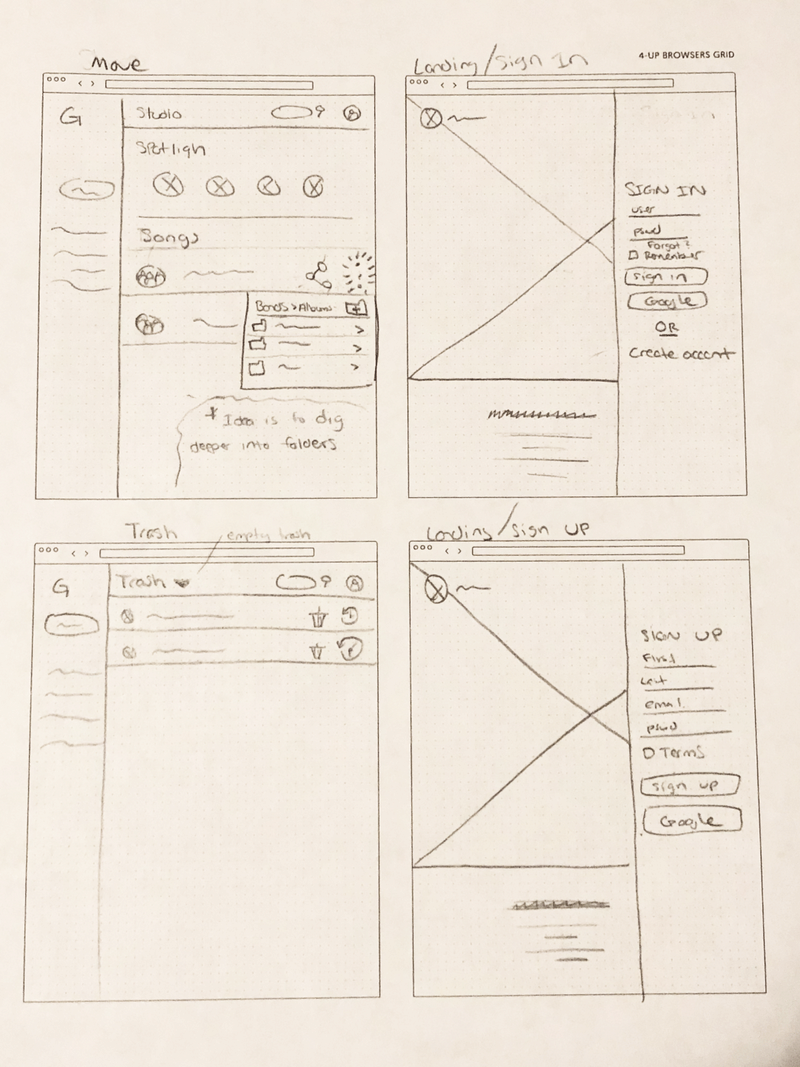 4-UP BROWSERS GRID
Move
G
Studio
Spotligh
Songs
Bands > Albums
* Idea is to dig
deeper into folders
Landing/Sign In
SIGN IN
user
pswd
Forgot?
Remember
Sign in
Google
OR
Create accont
Trash
empty trash
G
Trash
Landing/Sign UP
SIGN UP
First
Last
email
pswd
Terms
Sign up
Google